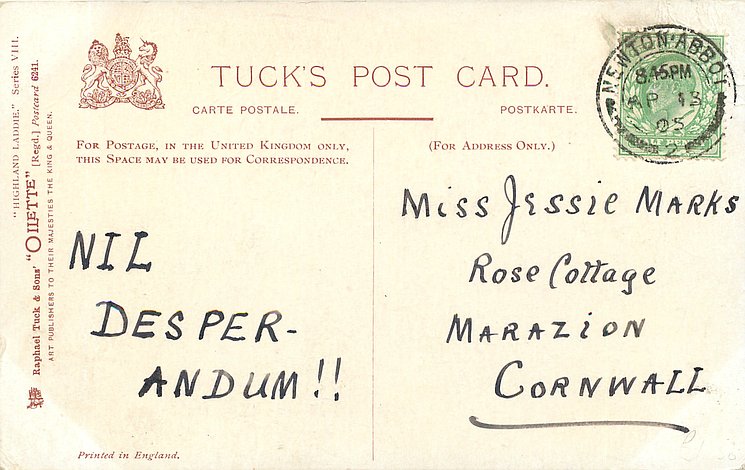 TUCK'S POST CARD.
CARTE POSTALE.
POSTKARTE.
FOR POSTAGE, IN THE UNITED KINGDOM ONLY,
THIS SPACE MAY BE USED FOR CORRESPONDENCE.
(FOR ADDRESS ONLY.)
NEWTON ABBOT
8.45PM
AP 13
05
2
"HIGHLAND LADDIE." Series VIII.
Raphael Tuck & Sons' "OILETTE" [Regd.] Postcard 6241.
ART PUBLISHERS TO THEIR MAJESTIES THE KING & QUEEN.
NIL
DESPER-
ANDUM!!
Miss Jessie Marks
Rose Cottage
MARAZION
CORNWALL
Printed in England.